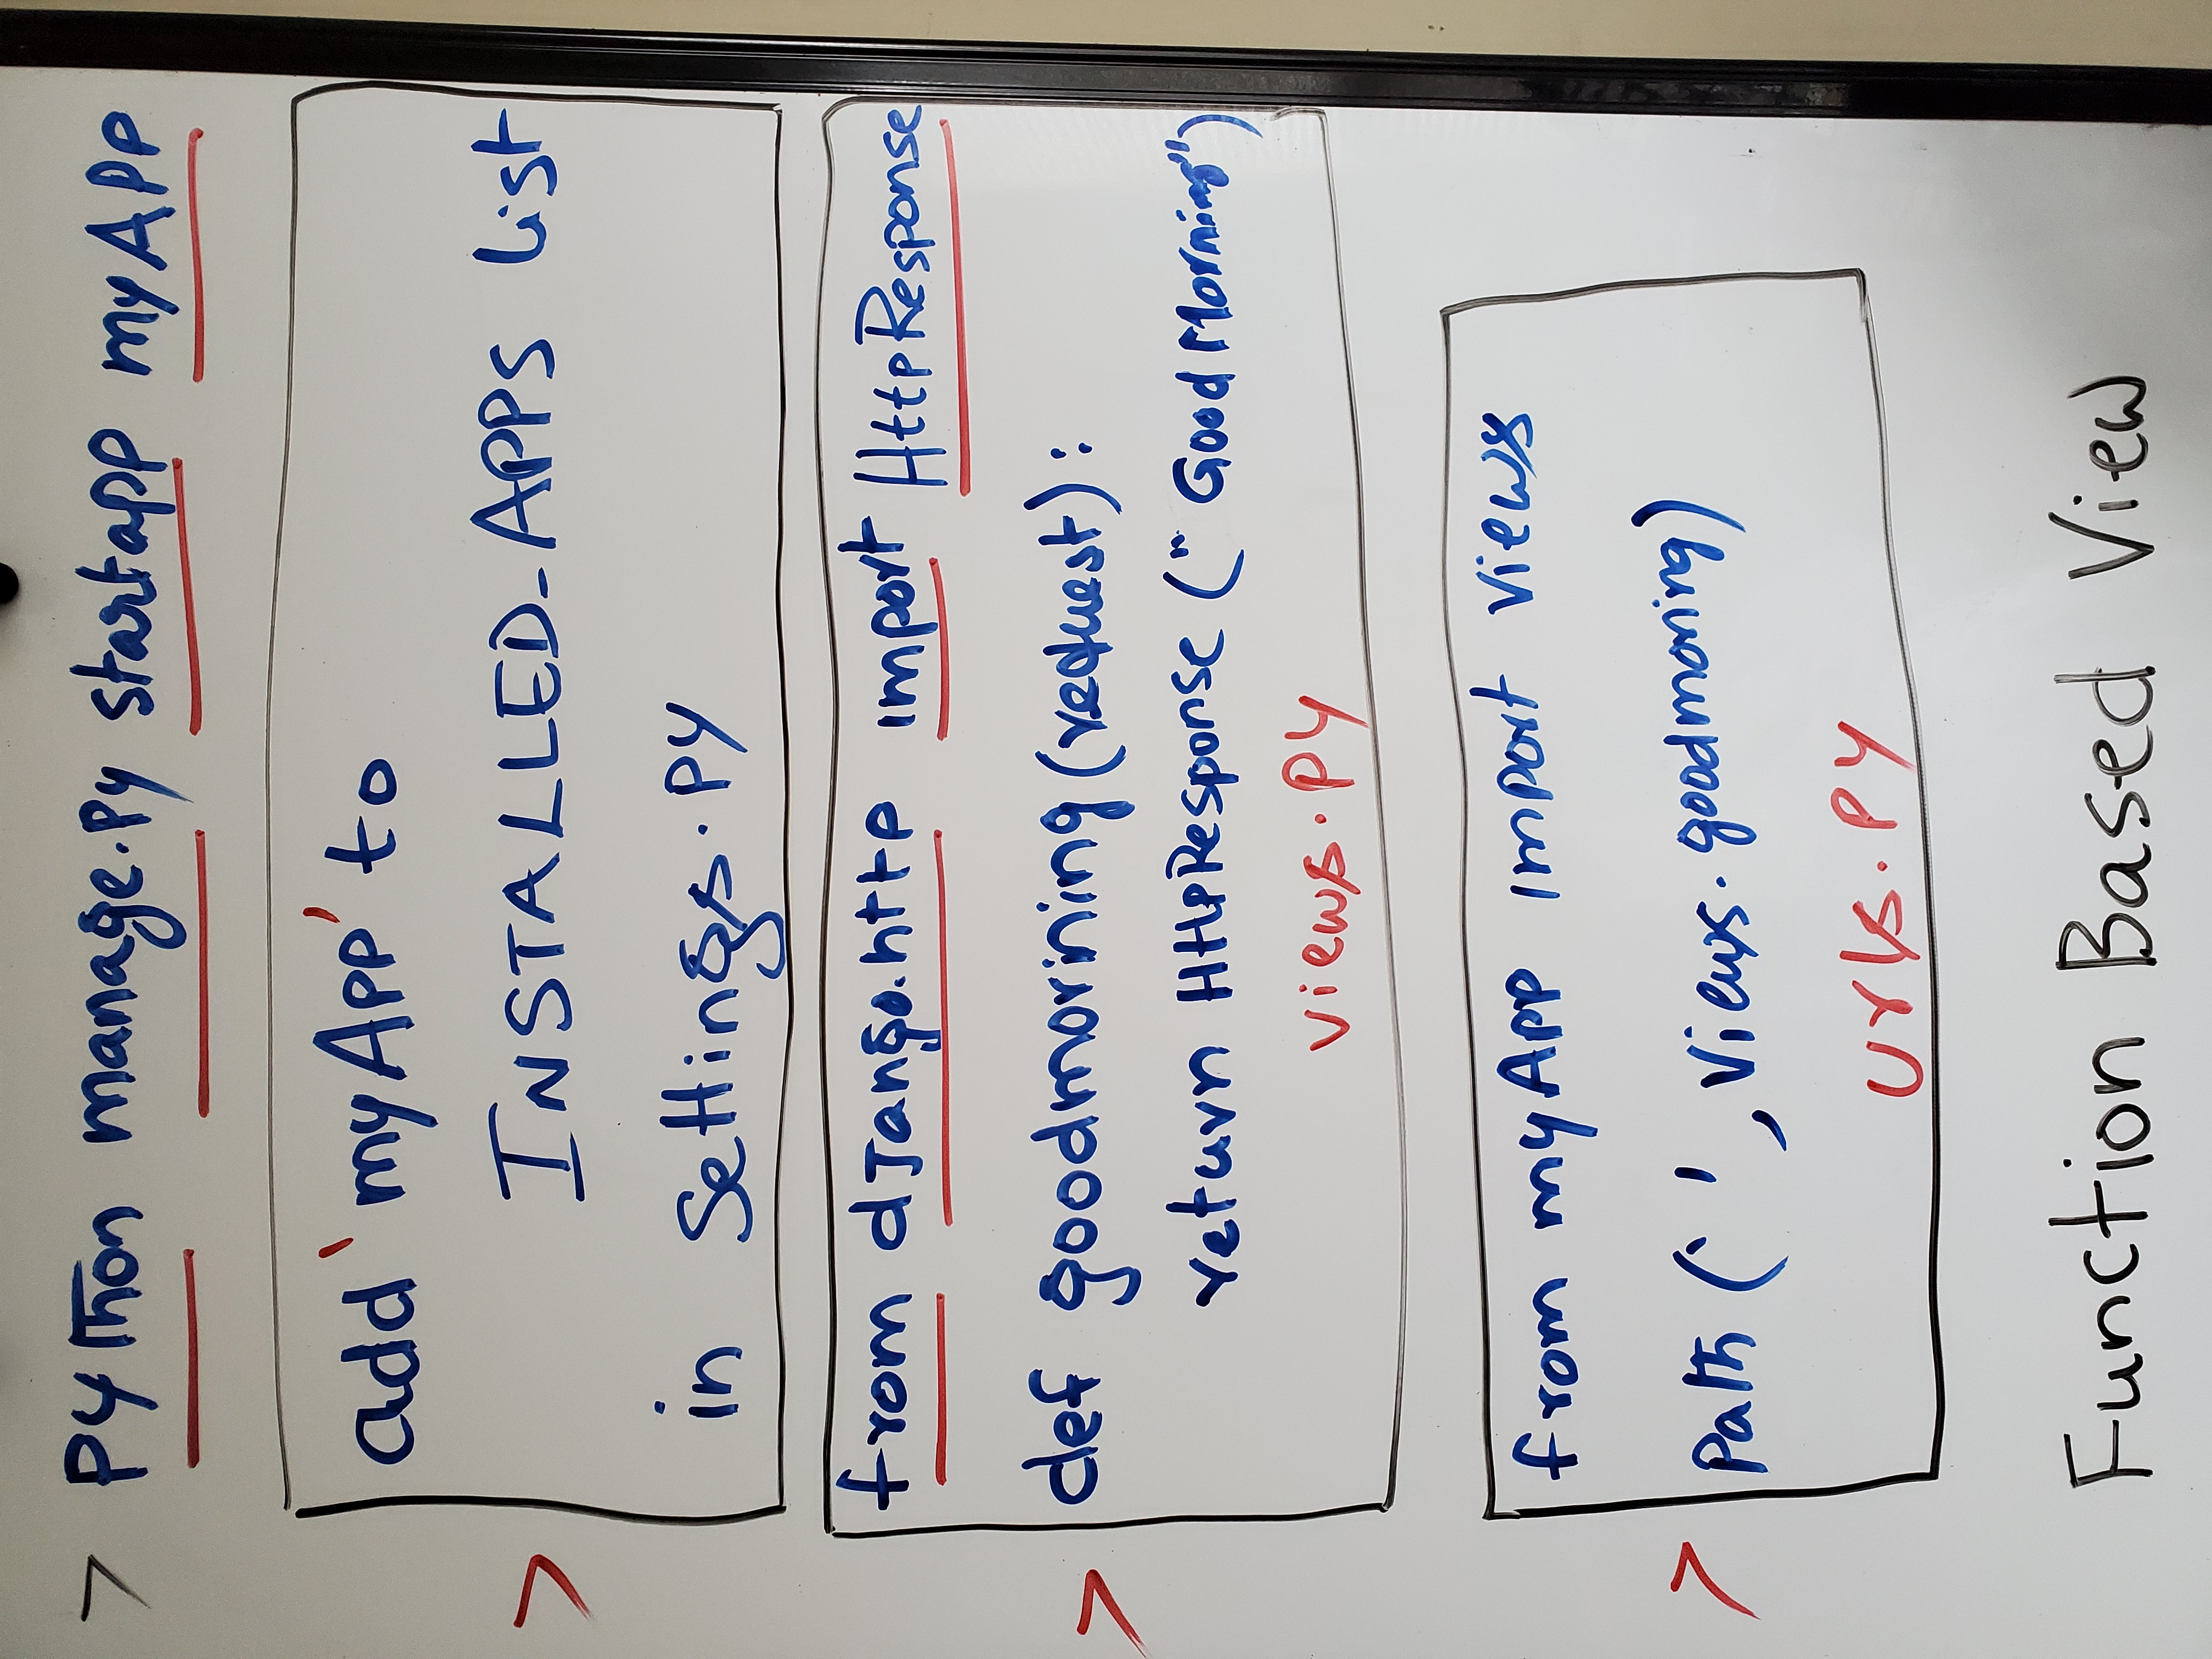 > Python manage.py startapp myApp
add 'myApp' to
> INSTALLED_APPS list
in settings.py
from django.http import HttpResponse
> def goodmorining(request):
return HttpResponse ("Good Morning")
views.py
from myApp import views
> Path (' ', views.goodmoring)
urls.py
Function Based View